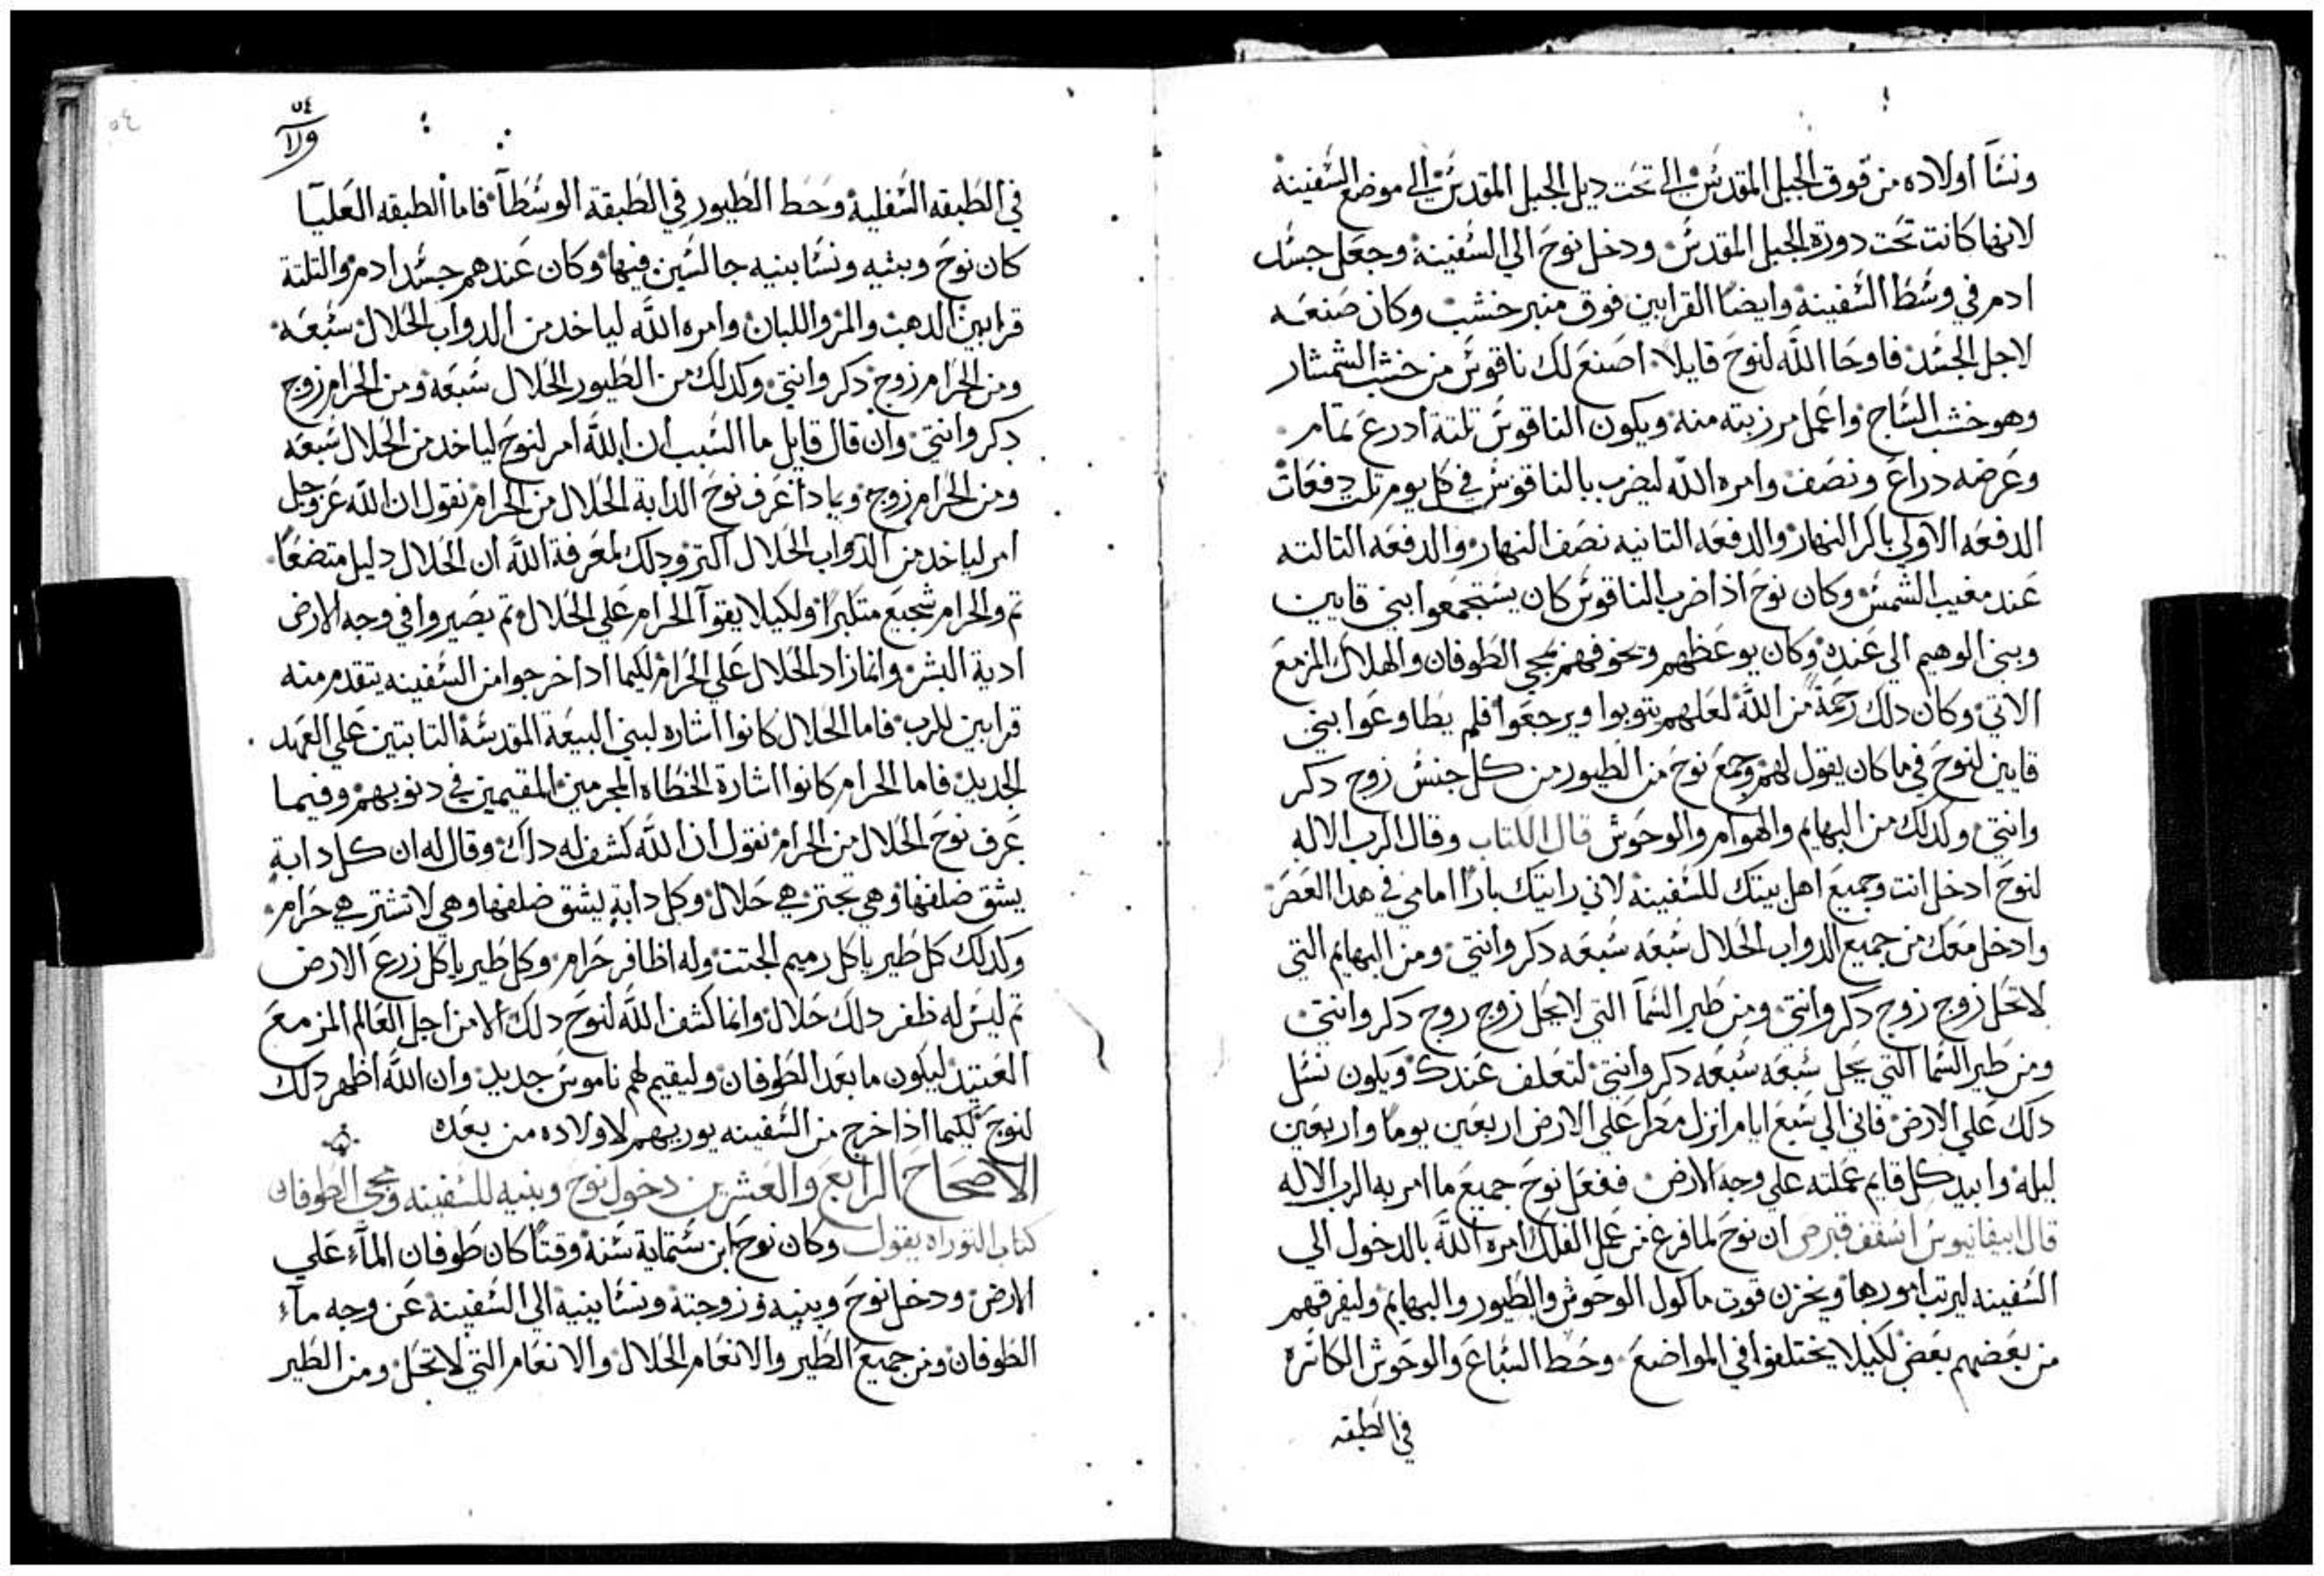 ونسا اولاده من فوق الجبل المقدس الي تحت ديل الجبل المقدس الي موضع السفينة
لانها كانت تحت دورة الجبل المقدس ودخل نوح الي السفينة وجعل جسد
ادم في وسط السفينة وايضا القرابين فوق منبر خشب وكان صنعه
لاجل الجسد فاوحا الله لنوح قايلا اصنع لك ناقوس من خشب الشمشار
وهو خشب الساج واعمل مرزبته منه ويكون الناقوس تلتة ادرع تمام
وعرضه دراع ونصف وامره الله ليضرب بالناقوس في كل يوم تلت دفعات
الدفعه الاولي باكر النهار والدفعه التانيه نصف النهار والدفعه التالته
عند مغيب الشمس وكان نوح اذا ضرب الناقوس كان يستجمعوا بني قايين
وبني الوهيم الي عنده وكان يوعظهم ويخوفهم بمجي الطوفان والهلاك المزمع
الاتي وكان دلك رحمة من الله لعلهم يتوبوا ويرجعوا فلم يطاوعوا بني
قايين لنوح في ما كان يقول لهم وجمع نوح من الطيور من كل جنس زوج دكر
وانتي وكدلك من البهايم والهوام والوحوش قال الكتاب وقال الرب الاله
لنوح ادخل انت وجميع اهل بيتك للسفينة لاني رايتك بارا امامي في هدا العصر
وادخل معك من جميع الدواب الحلال سبعه سبعه دكر وانتي ومن البهايم التي
لا تحل زوج زوج دكر وانتي ومن طير السما التي لا يحل زوج زوج دكر وانتي
ومن طير السما التي يحل سبعه سبعه دكر وانتي لتعلف عندك ويكون نسل
دلك علي الارض فاني الي سبع ايام انزل مطر علي الارض اربعين يوما واربعين
ليله وابيد كل قايم عملته علي وجه الارض ففعل نوح جميع ما امر به الرب الاله
قال ابيفانيوس اسقف قبرص ان نوح لما فرغ من عمل الفلك امره الله بالدخول الي
السفينه ليرتب امورها ويخزن قوت ماكول الوحوش والطيور والبهايم وليفرقهم
من بعضهم بعض لكيلا يختلفوا في المواضع وحط السباع والوحوش الكاسره
في الطبقه
٥٤
في الطبقه السفليه وحط الطيور في الطبقة الوسطا فاما الطبقه العليا
كان نوح وبنيه ونسا بنيه جالسين فيها وكان عندهم جسد ادم والتلتة
قرابين الدهب والمر واللبان وامره الله لياخد من الدواب الحلال سبعه
ومن الحرام زوج دكر وانتي وكدلك من الطيور الحلال سبعه ومن الحرام زوج
دكر وانتي وان قال قايل ما السبب ان الله امر لنوح لياخد من الحلال سبعه
ومن الحرام زوج وبمادا عرف نوح الدابة الحلال من الحرام نقول ان الله عز وجل
امر لياخد من الدواب الحلال اكتر ودلك لمعرفة الله ان الحلال دليل متضعا
تم والحرام شجيع متكبرا ولكيلا يقوا الحرام علي الحلال تم يصيروا في وجه الارض
ادية البشر وانما زاد الحلال علي الحرام لكيما ادا خرجوا من السفينه يتقدم منه
قرابين للرب فاما الحلال كانوا اشاره لبني البيعة المقدسة التابتين علي العهد
الجديد فاما الحرام كانوا اشارة الخطاه المجرمين المقيمين في دنوبهم وفيما
عرف نوح الحلال من الحرام نقول ان الله كشف له دلك وقال له ان كل دابة
يشق ضلفها وهي تجتر هي حلال وكل دابة يشق ضلفها وهي لا تشتر هي حرام
وكدلك كل طير ياكل رميم الجتت وله اظافر حرام وكل طير ياكل زرع الارض
تم ليس له ظفر دلك حلال وانما كشف الله لنوح دلك الا من اجل العالم المزمع
العتيد ليكون ما بعد الطوفان وليقيم لهم ناموس جديد وان الله اظهر دلك
لنوح لكيما اذا خرج من السفينه يوريهم لاولاده من بعده
الاصحاح الرابع والعشرين دخول نوح وبنيه للسفينه ومجي الطوفان
كتاب التوراه يقول وكان نوح ابن ستماية سنة وقتا كان طوفان الماء علي
الارض ودخل نوح وبنيه وزوجته ونسا بنيه الي السفينة عن وجه ماء
الطوفان ومن جميع الطير والانعام الحلال والانعام التي لا تحل ومن الطير